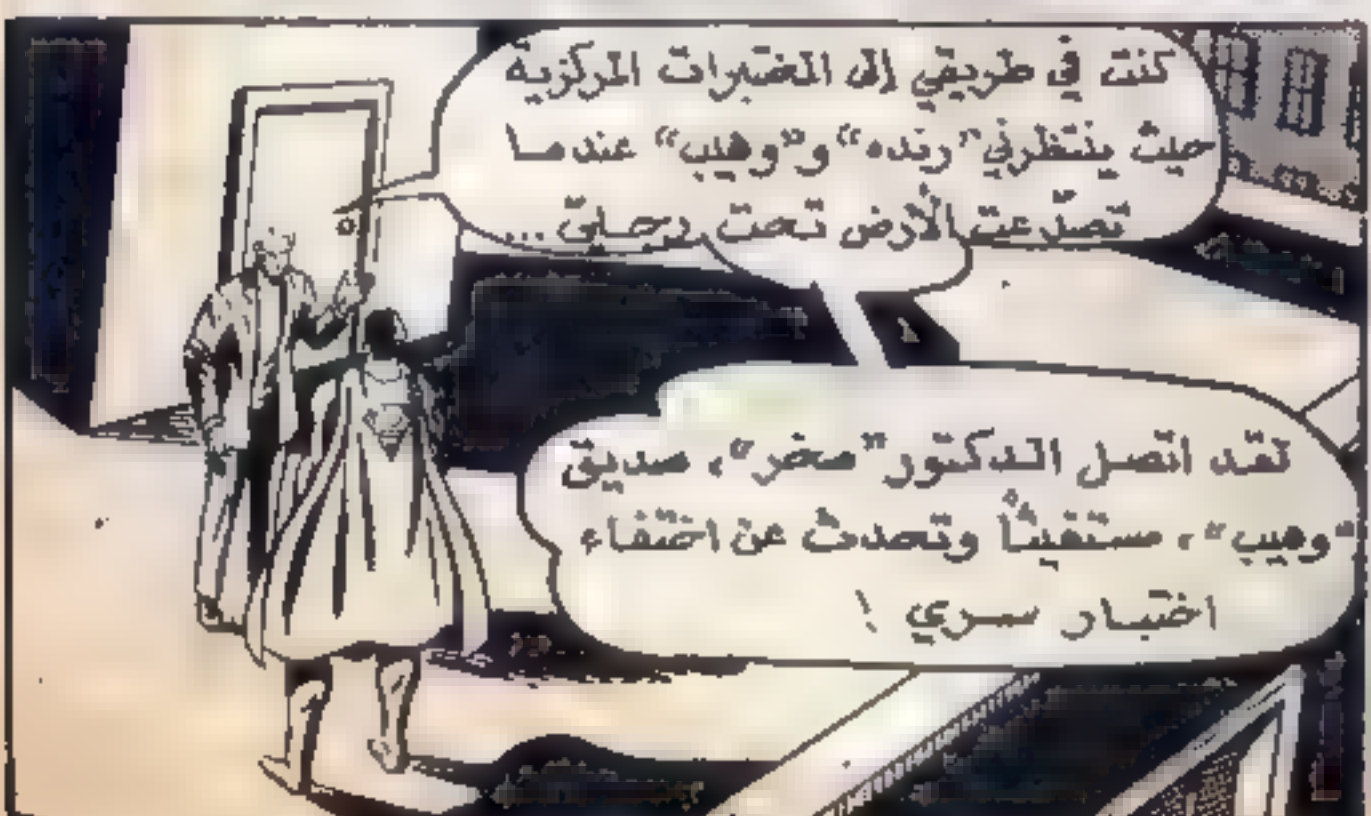 كنت في طريقي إلى المختبرات المركزية
حيث ينتظرني "رنده" و"وهيب" عندما
تصدّعت الأرض تحت رجليّ ...
لقد اتصل الدكتور "صخر"، صديق
"وهيب"، مستغيثاً وتحدث عن اختفاء
اختبار سري !